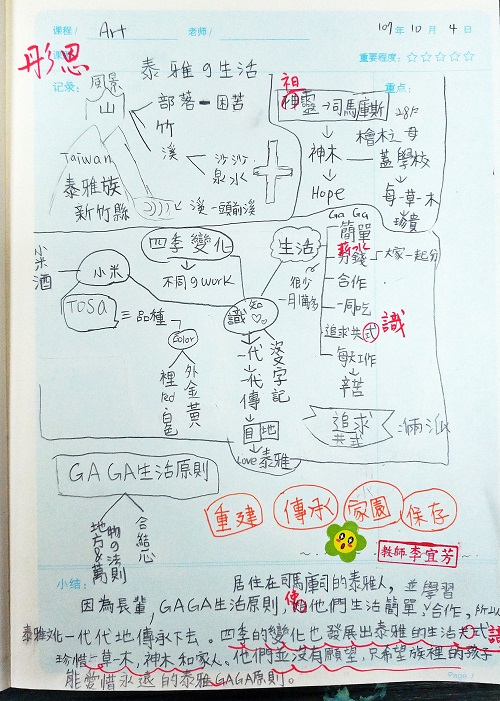 课程/ Art 老师/ 107年 10月 4日
彤恩 重要程度:☆☆☆☆☆
记录: 泰雅の生活 重点:
風景
山
部落-困苦
竹
溪
沙沙
泉水
溪-頭前溪
Taiwan
泰雅族
新竹縣
祖
神靈→司馬庫斯
神木
Hope
28戶
檜木之母
蓋學校
每一草一木
珍貴
小米酒
小米
TOSA
三品種
Color
裡red白色
外金黃
四季變化
不同のwork
知識
一代一代傳
沒文字記
目地
Love泰雅
生活
GaGa
簡單
薪水
分錢
大家一起分
很少
一月1萬多
合作
一同吃
追求共式 識
每天工作
辛苦
追求共式
GAGA生活原則
地方&萬物の法則
合結心
重建 傳承 家園 保存
教師 李宜芳
小结: 居住在司馬庫司的泰雅人,並學習
因為長輩,GAGA生活原則,使他們生活簡單、合作,所以
泰雅文化一代代地傳承下去。四季的變化也發展出泰雅的生活共式識
珍惜一草一木,神木和家人。他們並沒有願望,只希望族裡的孩子
能愛惜永遠的泰雅GAGA原則。
Page /